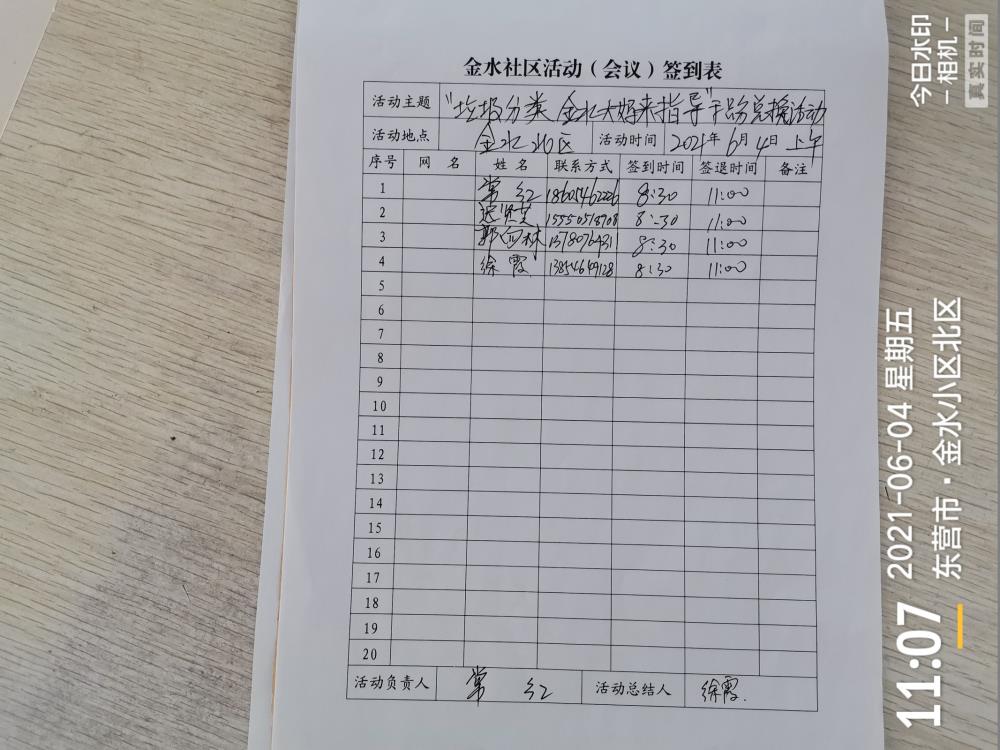 金水社区活动（会议）签到表
活动主题 "垃圾分类 金水大嫂来指导" 兑换活动
活动地点 金水北区 活动时间 2021年6月4日上午
序号 网 名 姓 名 联系方式 签到时间 签退时间 备注
1 常红 18605462226 8:30 11:00
2 15550518708 8:30 11:00
3 郭向林 1378076431 8:30 11:00
4 徐霞 13854649128 8:30 11:00
5
6
7
8
9
10
11
12
13
14
15
16
17
18
19
20
活动负责人 常 红 活动总结人 徐霞.
今日水印
相机
真实时间
11:07
2021-06-04 星期五
东营市·金水小区北区